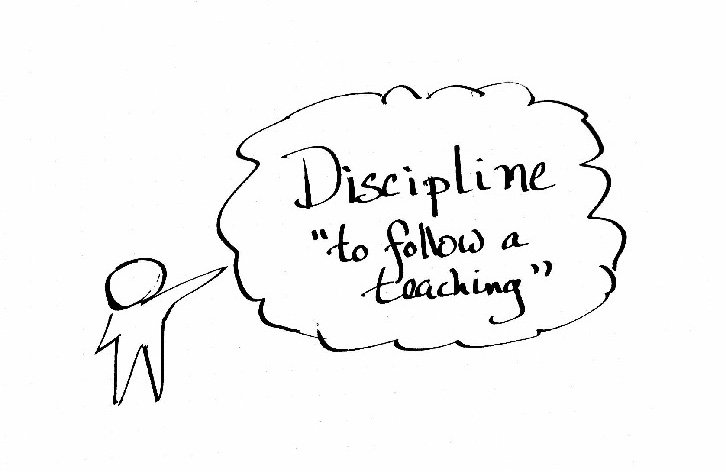 Discipline
"to follow a
teaching"